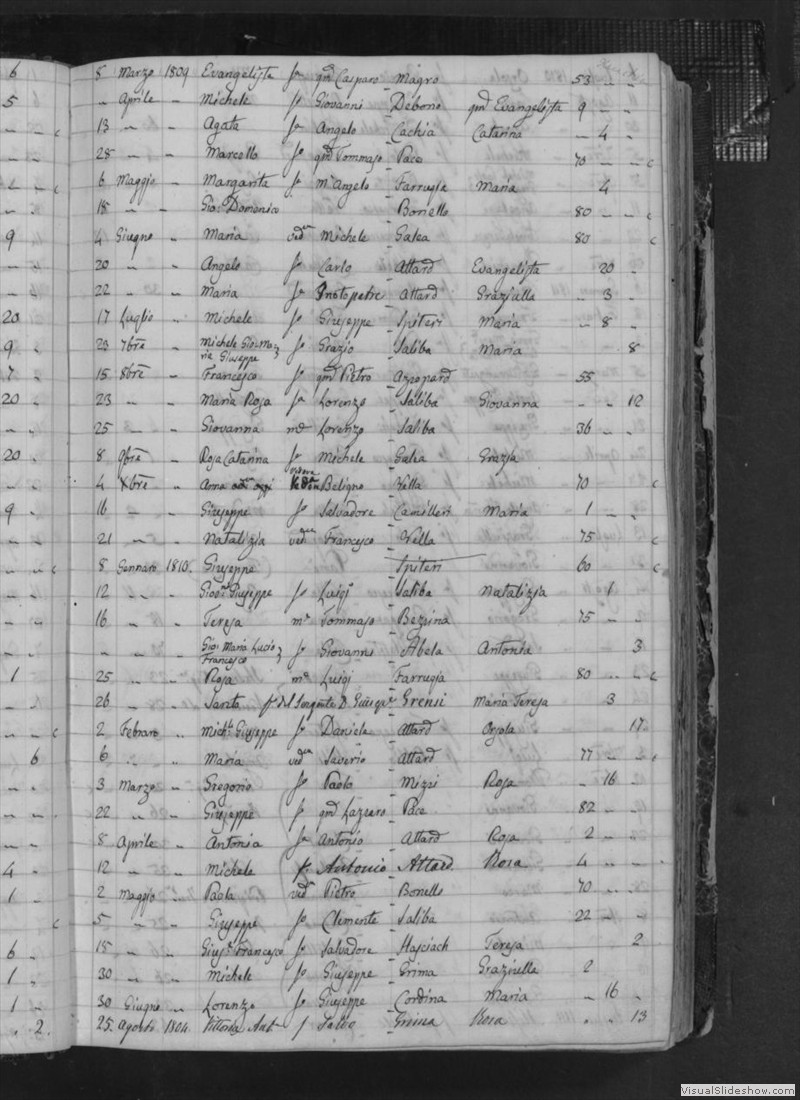 6 8 Marzo 1809 Evangelista fa qm Casparo Magro 53 " "
5 " Aprile " Michele fo Giovanni Debono qm Evangelista 9 " "
" " c 13 " " Agata fa Angelo Cachia Catarina " 4 "
" " 28 " " Marcello fo qm Tommaso Pace 70 " " c
" c 6 Maggio " Margarita fa Angelo Farrugia Maria 4
" " 18 " " Gio: Domenico Bonello 80 " " c
9 4 Giugno " Maria veda Michele Galea 80 c
" " 20 " " Angelo fo Carlo Attard Evangelista " 20 "
" " 22 " " Maria fa Protopetre Attard Graziella " 3 "
20 17 Luglio " Michele fo Giuseppe Spiteri Maria " 8 "
9 " 23 7bre " Michele Gio: Ma=
ria Giuseppe fo Grazio Saliba Maria " 8
7 " 15 8bre " Francesco fo qm Pietro Azzopard 55
20 " 23 " " Maria Rosa fa Lorenzo Saliba Giovanna " " 12
" " 25 " " Giovanna me Lorenzo Saliba 36 " "
20 " 8 9bre " Rosa Catarina fa Michele Galea Grazia
" " 4 Xbre " Anna Vedova Beligno Vella 70 c
9 " 16 " " Giuseppe fo Salvadore Camilleri Maria 1 " "
" " 21 " " Natalizia veda Francesco Vella 75 c
" " c 8 Gennaro 1810. Giuseppe Spiteri 60 c
" " 12 " " Giuseppe fo Luigi Saliba Natalizia 1
" " 16 " " Teresa me Tommaso Bezzina 75 " "
" " " " " Gio: Maria Lucio
Francesco fo Giovanni Abela Antonia 3
1 25 " " Rosa me Luigi Farrugia 80 " " c
" " 26 " " Santa fa del Sergente D Giuseppe Grensi Maria Teresa 3
" " c 2 Febraro " Michle Giuseppe fo Daniele Attard Orsola 17
6 6 " " Maria veda Saverio Attard 77 " " c
" " 3 Marzo " Gregorio fo Paolo Mizzi Rosa " 16 "
" " 22 " " Giuseppe fo qm Lazzaro Pace 82 " "
" " 8 Aprile " Antonia fa Antonio Attard Rosa 2 " "
4 " 12 " " Michele fo Antonio Attard Rosa 4 " "
1 " 2 Maggio " Paola veda Pietro Bonello 70 " "
c 5 " " Giuseppe fo Clemente Saliba 22 " "
6 " 18 " " Giuse Francesco fo Salvadore Hasciach Teresa 2
1 " 30 " " Michele fo Giuseppe Grima Graziulla 2
1 " 30 Giugno " Lorenzo fo Giuseppe Cordina Maria " 16 "
" 2. 25 Agosto 1804 Vittoria Ant f Salvo Grima Rosa " " 13
VisualSlideshow.com